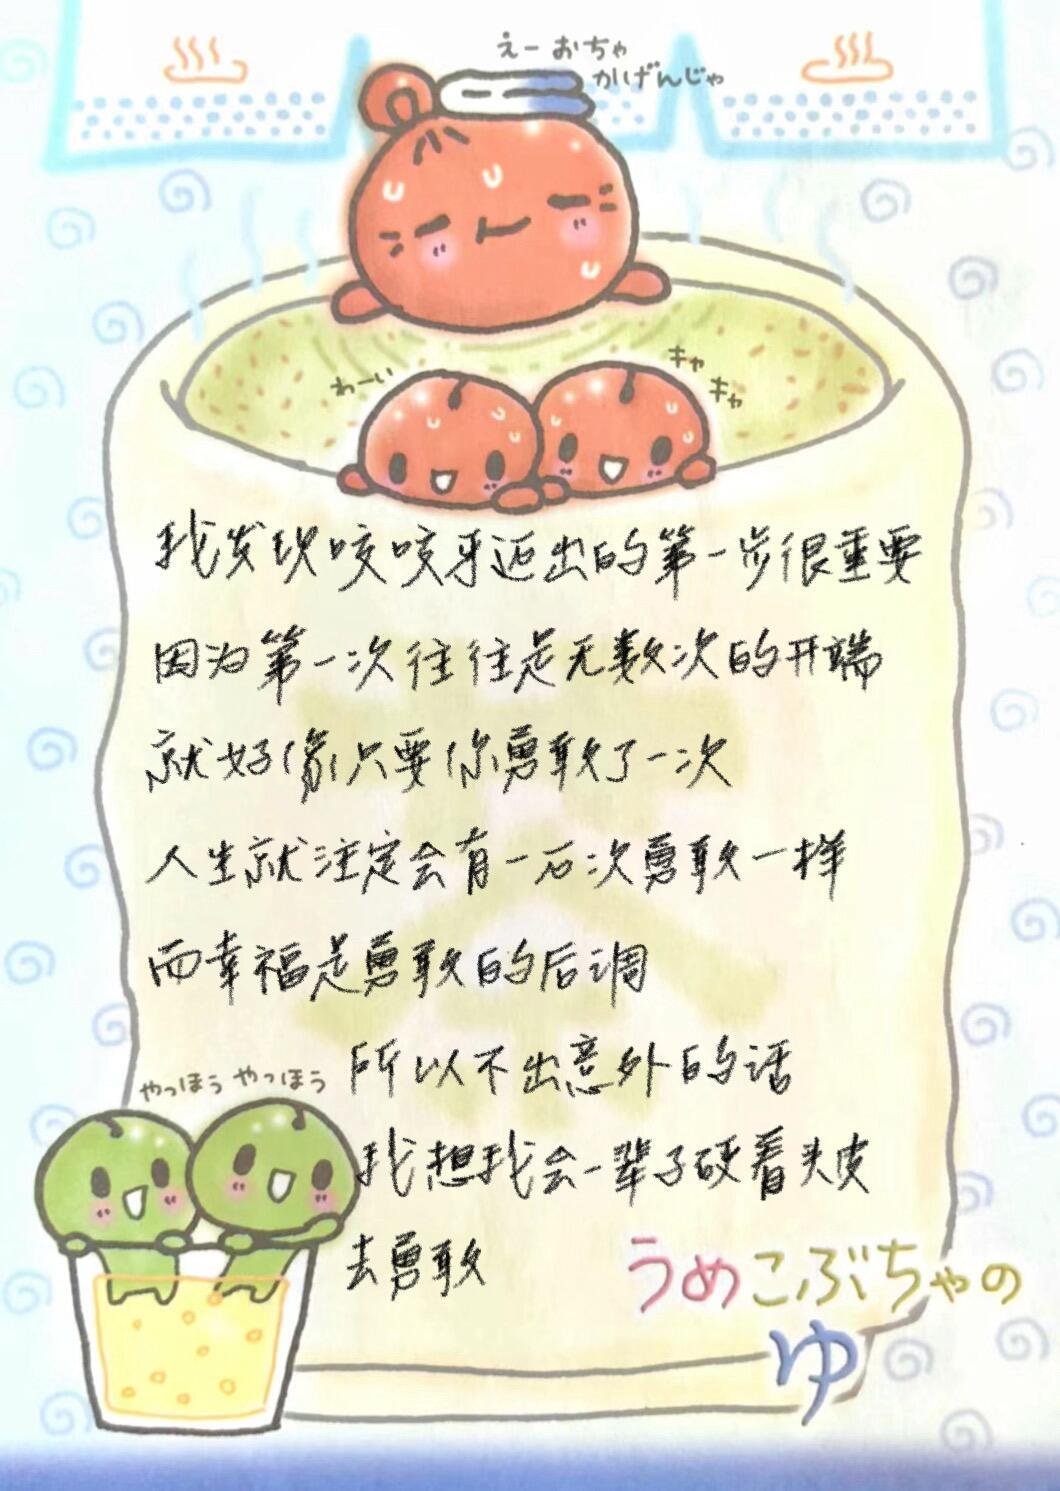 えーおちゃ
かげんじゃ
わーい
キャ
キャ
我发现咬咬牙迈出的第一步很重要
因为第一次往往是无数次的开端
就好像只要你勇敢了一次
人生就注定会有一万次勇敢一样
而幸福是勇敢的后调
所以不出意外的话
我想我会一辈子硬着头皮
去勇敢
やっほう やっほう
うめこぶちゃの
ゆ